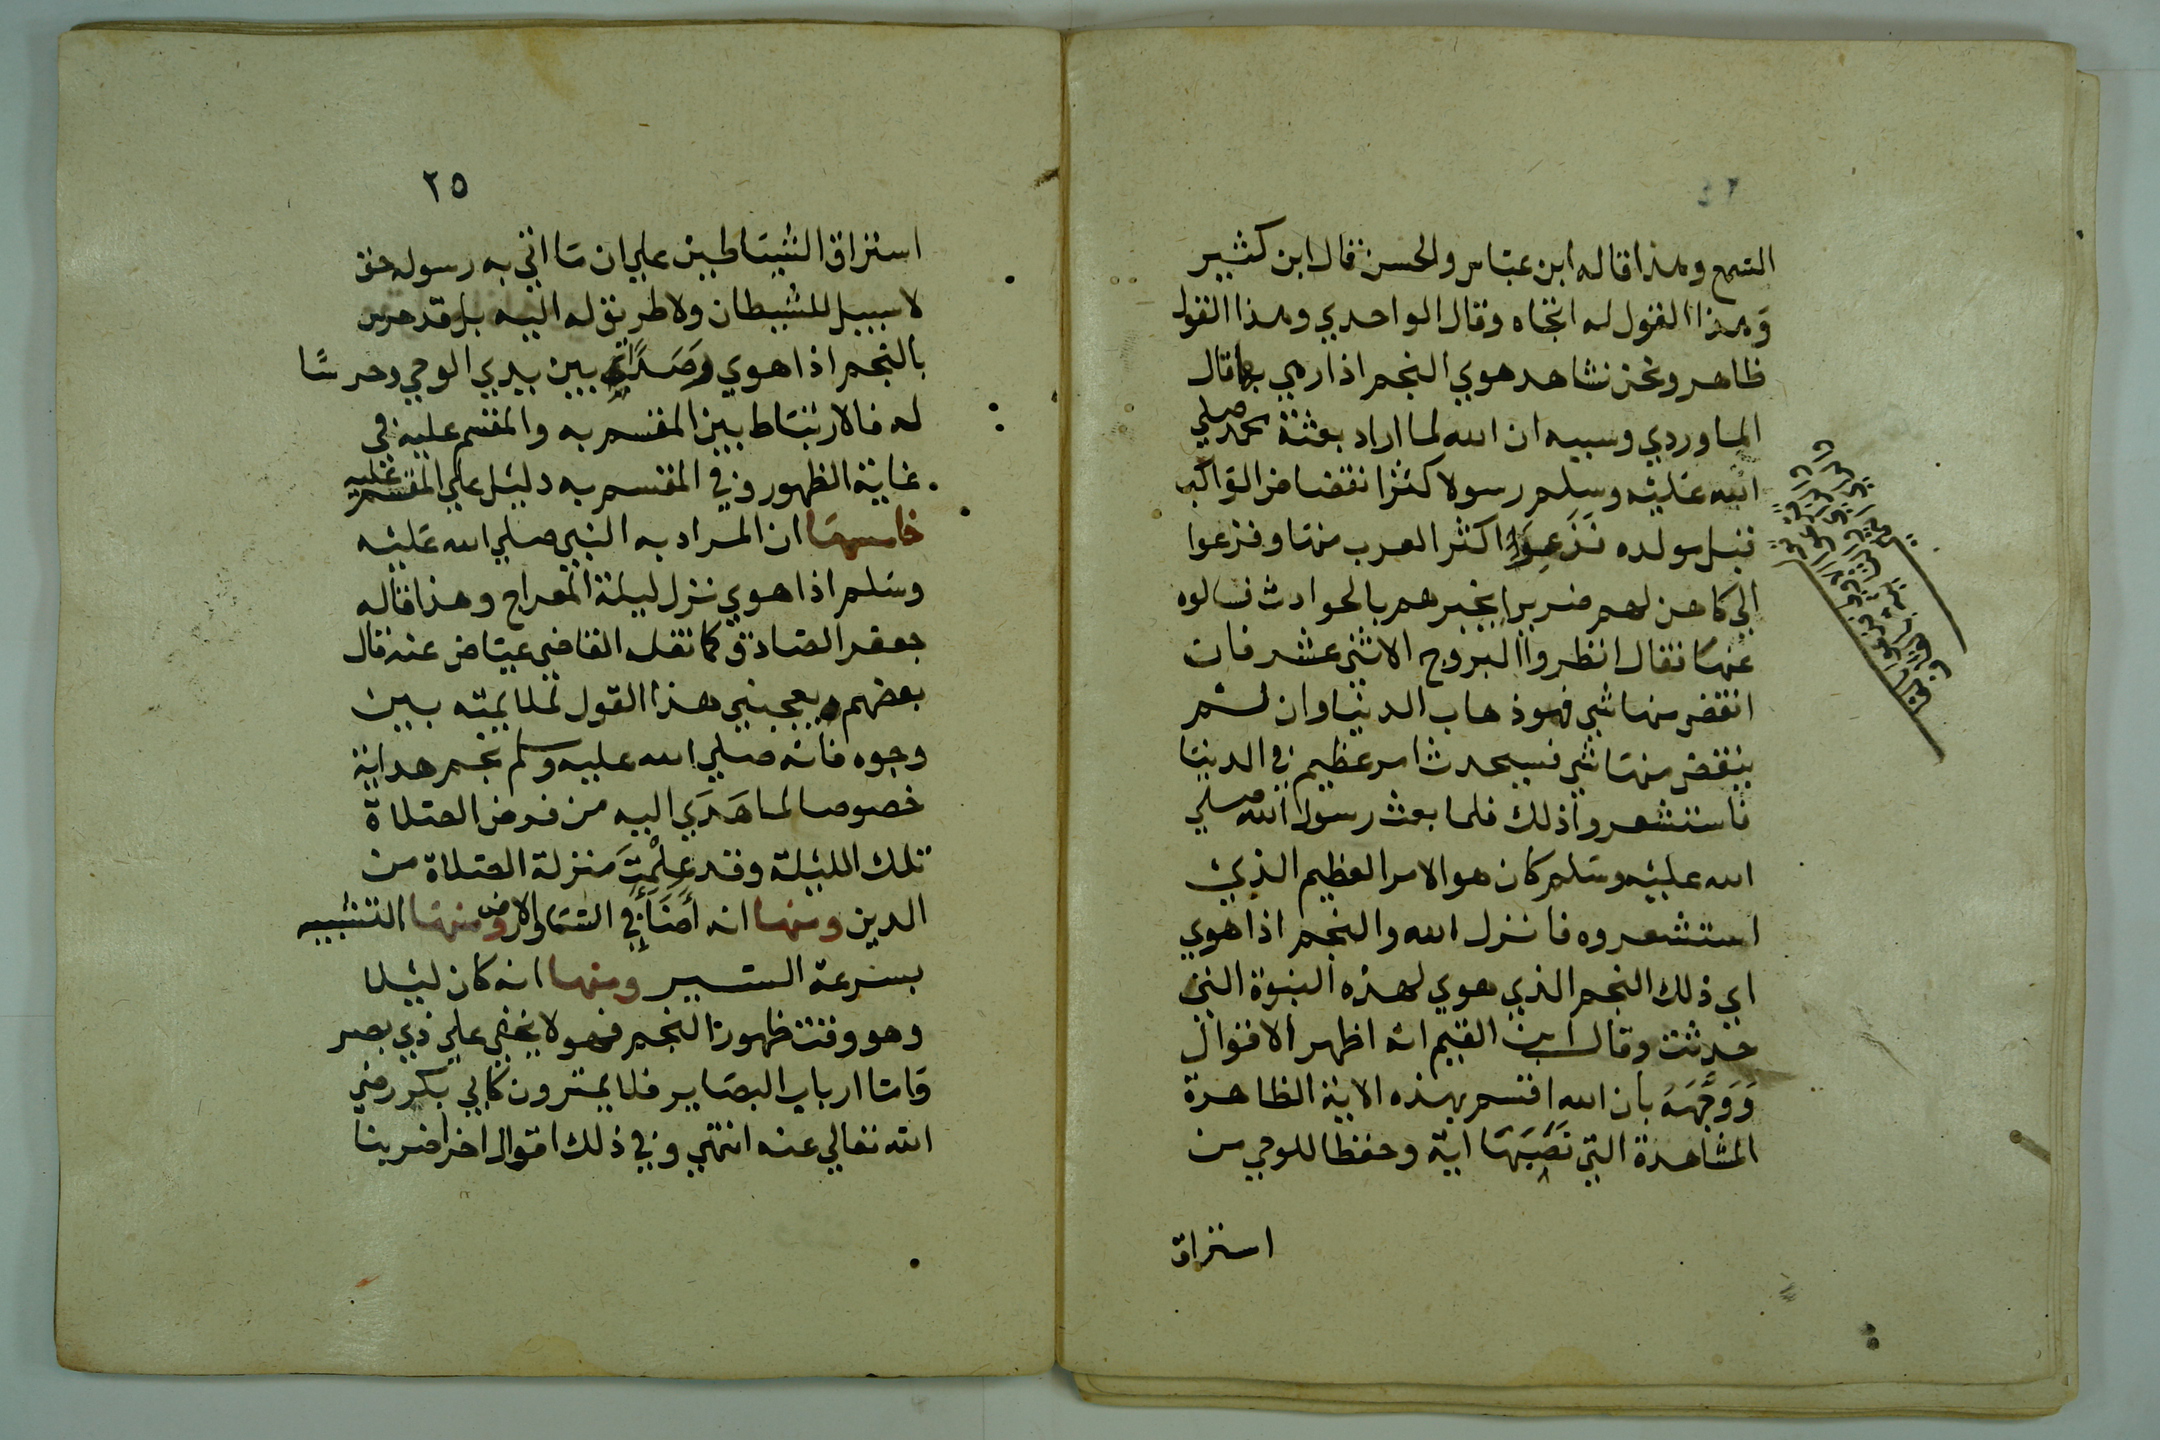 السمع وهذا قاله ابن عباس والحسن قال ابن كثير
وهذا القول له اتجاه وقال الواحدي وهذا القول
ظاهر ونحن نشاهد هوي النجم اذا رمي بها قال
الماوردي وسببه ان الله لما اراد بعثة محمد صلي
الله عليه وسلم رسولا كثر انقضاض الكواكب
قبل مولده فذعر اكثر العرب منها وفزعوا
الي كاهن لهم ضرير يخبرهم بالحوادث فسالوه
عنها فقال انظروا البروج الاثني عشر فان
انقض منها شي فهو ذهاب الدنيا وان لم
ينقض منها شي فسيحدث امر عظيم في الدنيا
فاستشعروا ذلك فلما بعث رسول الله صلي
الله عليه وسلم كان هو الامر العظيم الذي
استشعروه فانزل الله والنجم اذا هوي
اي ذلك النجم الذي هوي لهذه النبوة التي
حدثت وقال ابن القيم انه اظهر الاقوال
وَوَجَّهَهُ بان الله اقسم بهذه الاية الظاهرة
المشاهدة التي نَصَبَهَا اية وحفظا للوحي من
استراق
٢٥
استراق الشياطين علي ان ما اتي به رسوله حق
لا سبيل للشيطان ولا طريق له اليه بل قد حرس
بالنجم اذا هوي بين يدي الوحي وحرسًا
له فالارتباط بين المقسم به والمقسم عليه في
غاية الظهور وفي المقسم به دليل علي المقسم عليه
خامسها ان المراد به النبي صلي الله عليه
وسلم اذا هوي نزل ليلة المعراج وهذا قاله
جعفر الصادق كما نقله القاضي عياض عنه قال
بعضهم ويعجبني هذا القول لملايمته بين
وجوه فانه صلي الله عليه وسلم نجم هداية
خصوصا لما هَدَي اليه من فرض الصلاة
تلك الليلة وقد عَلِمْتَ منزلة الصلاة من
الدين ومنها انه أضَأَ في السما والارض ومنها التشبيه
بسرعة السير ومنها انه كان ليلا
وهو وقت ظهور النجم فهو لا يخفي علي ذي بصر
واما ارباب البصاير فلا يمترون كابي بكر رضي
الله تعالي عنه انتهي وفي ذلك اقوال اخر اضربنا